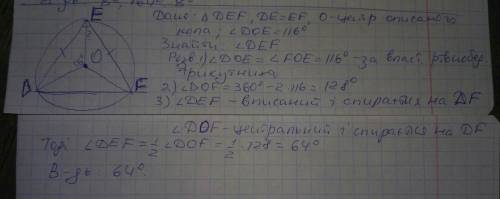 Дано: △DEF, DE=EF, O-центр описаного
кола, ∠DOE=116°
Знайти ∠DEF
Розв. 1) ∠DOE=∠FOE=116° - за власт. рівнобедр.
Трикутника
2) ∠DOF=360°-2·116=128°
3) ∠DEF - вписаний і спирається на DF
E
O
D
F
∠DOF - центральний і спирається на DF
Тоді ∠DEF=½∠DOF=½·128=64°
В-дь: 64°.